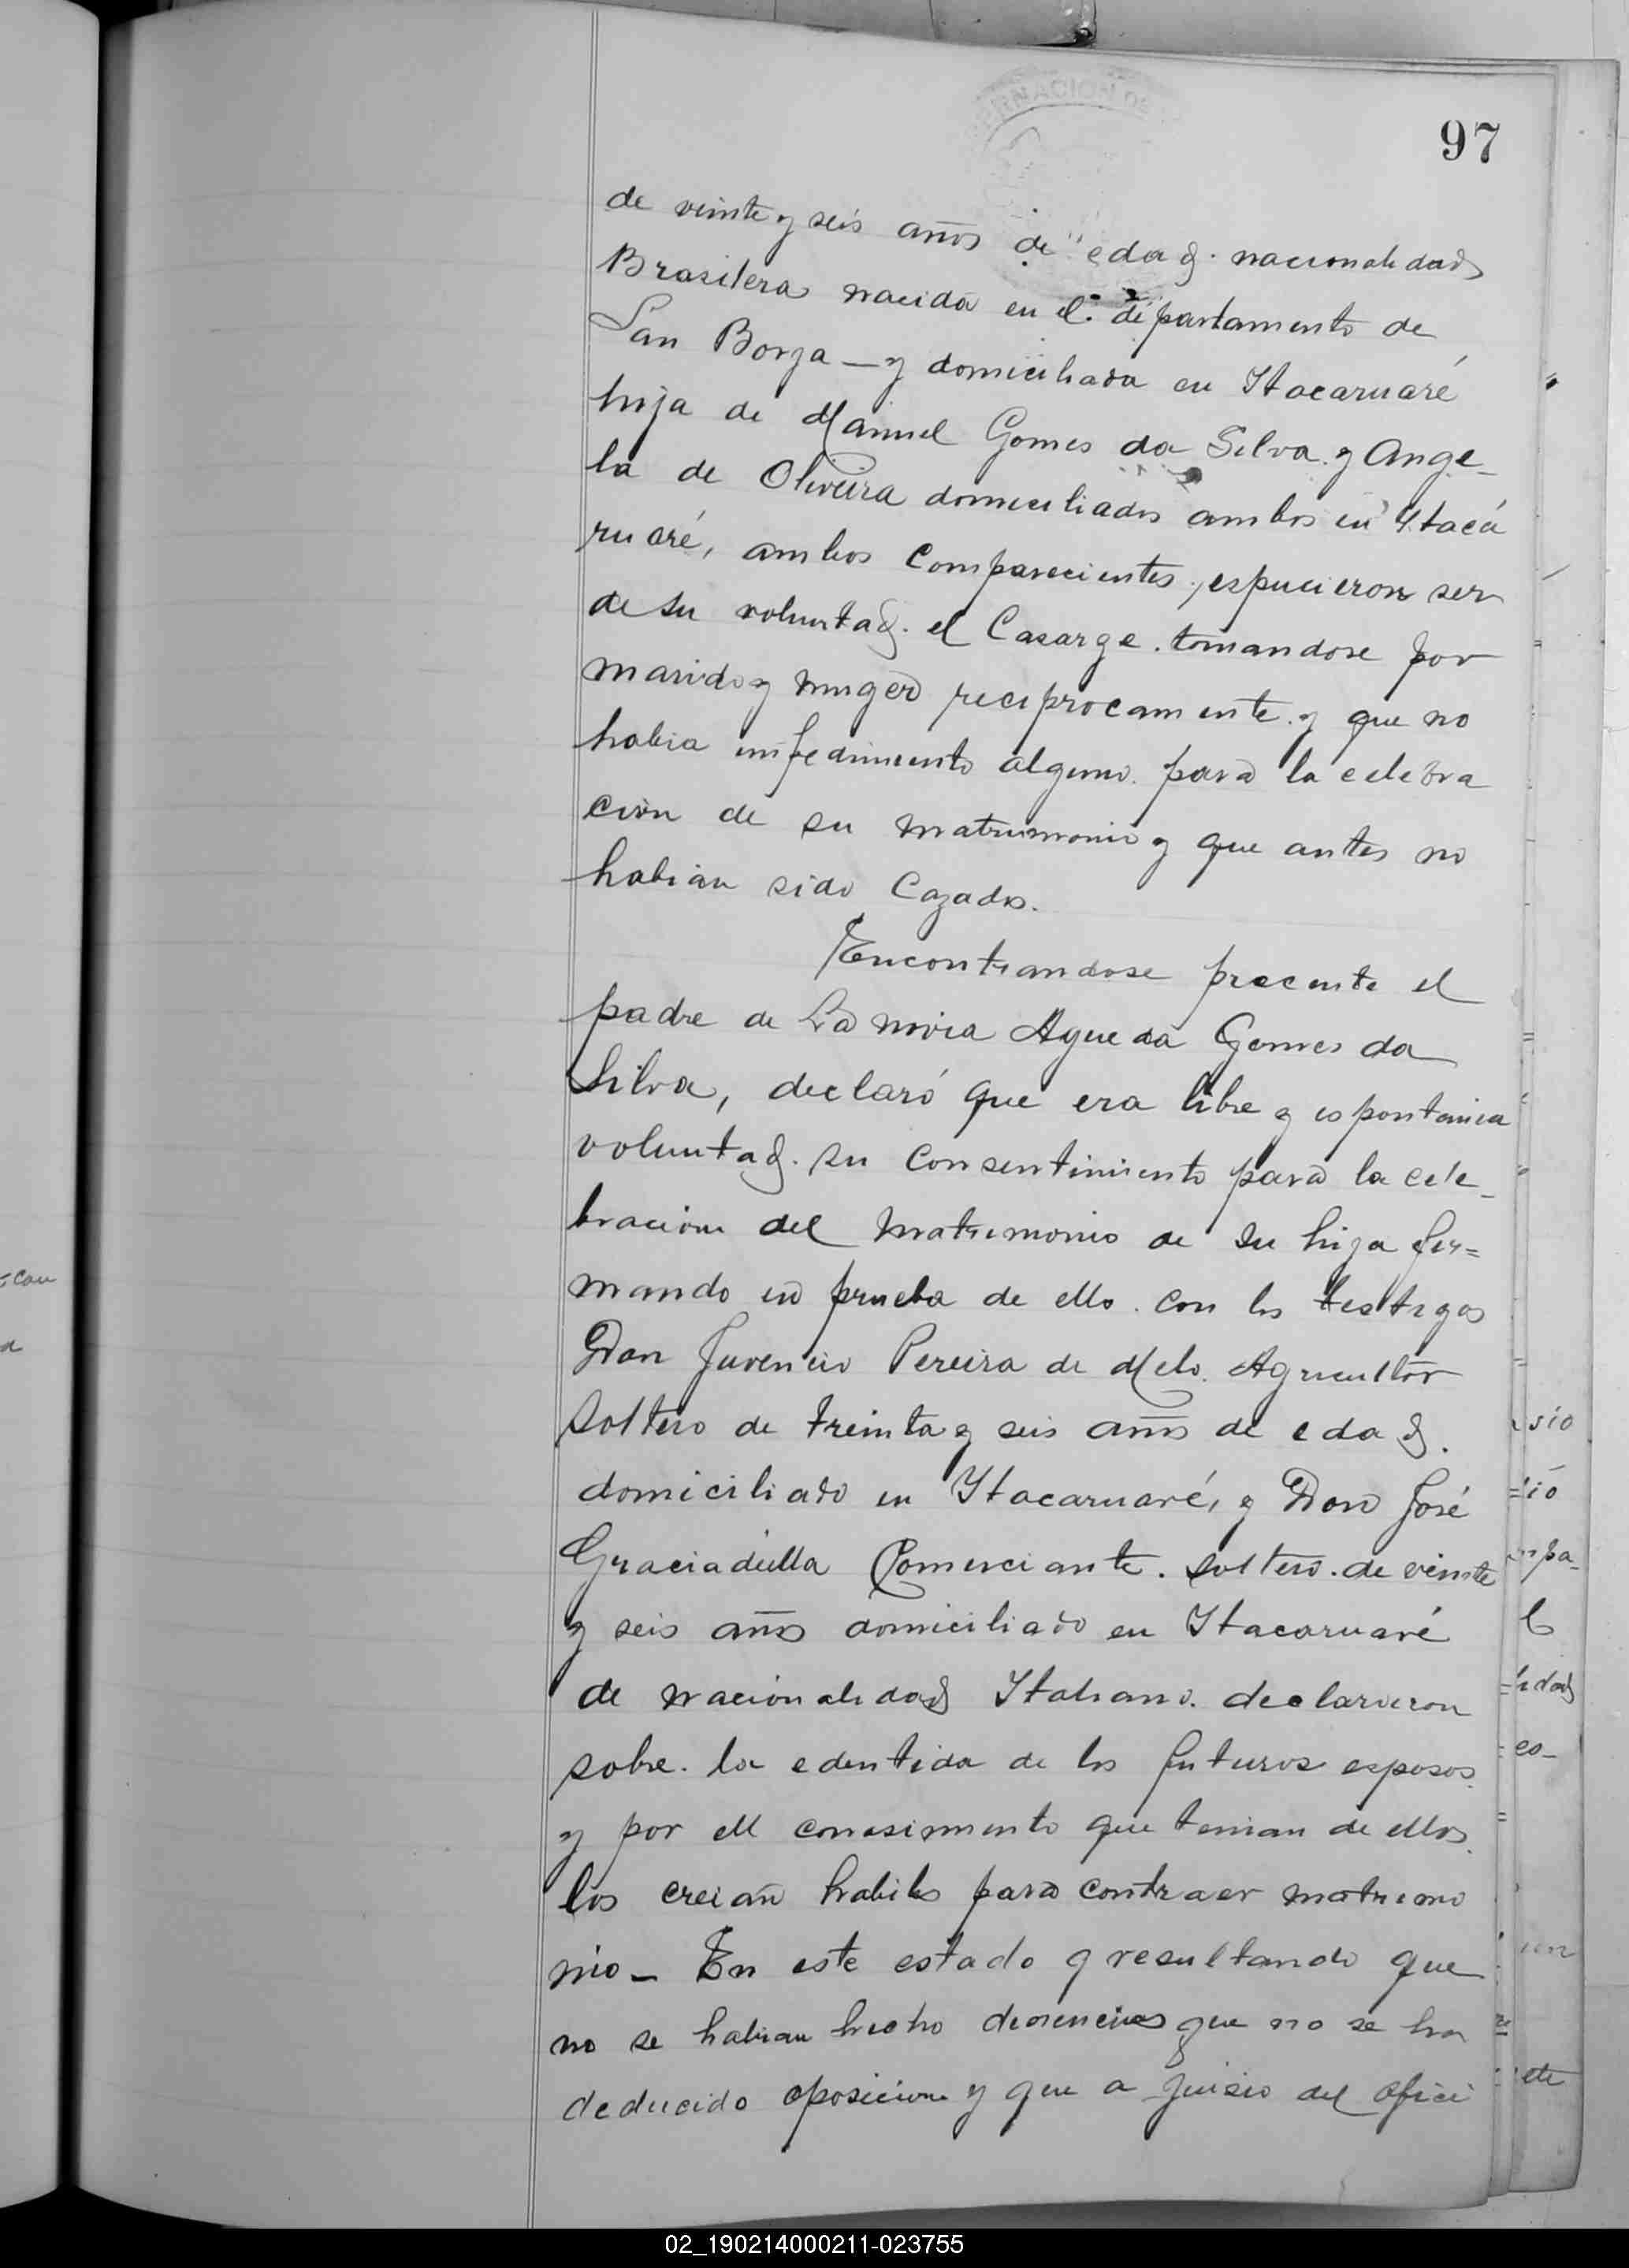 97
de veinte y seis años de edad. nacionalidad
Brasilera nacida en el departamento de
San Borga — y domiciliada en Itacaruaré
hija de Manuel Gomes da Silva y Ange-
la de Oliveira domiciliados ambos en Itaca
ruaré, ambos Comparecientes, espucieron ser
de su voluntad. el Casarge. tomandose por
marido y muger reciprocamente y que no
habia impedimento alguno para la celebra
cion de su matrimonio y que antes no
habian sido Cazados.
Encontrandose precente el
padre de La novia Agueda Gomes da
Silva, declaró que era libre y espontania
voluntad. su Consentimiento para la cele-
bracion del matrimonio de su hija fir=
mando en prueba de ello con los testigos
Don Juvencio Pereira de Melo. Agricultor
Soltero de treinta y seis años de edad.
domiciliado en Itacaruaré, y Don José
Graciadiella Comerciante. soltero. de veinte
y seis años domiciliado en Itacaruaré
de nacionalidad Italiano. declararon
sobre. la edentida de los futuros esposos
y por ell conosimiento que tenian de ellos
los creian habiles para contraer matrimo
nio - En este estado y resultando que
no se habian hecho denencias que no se ha
deducido oposicion y que a juisio del ofici
02_190214000211-023755